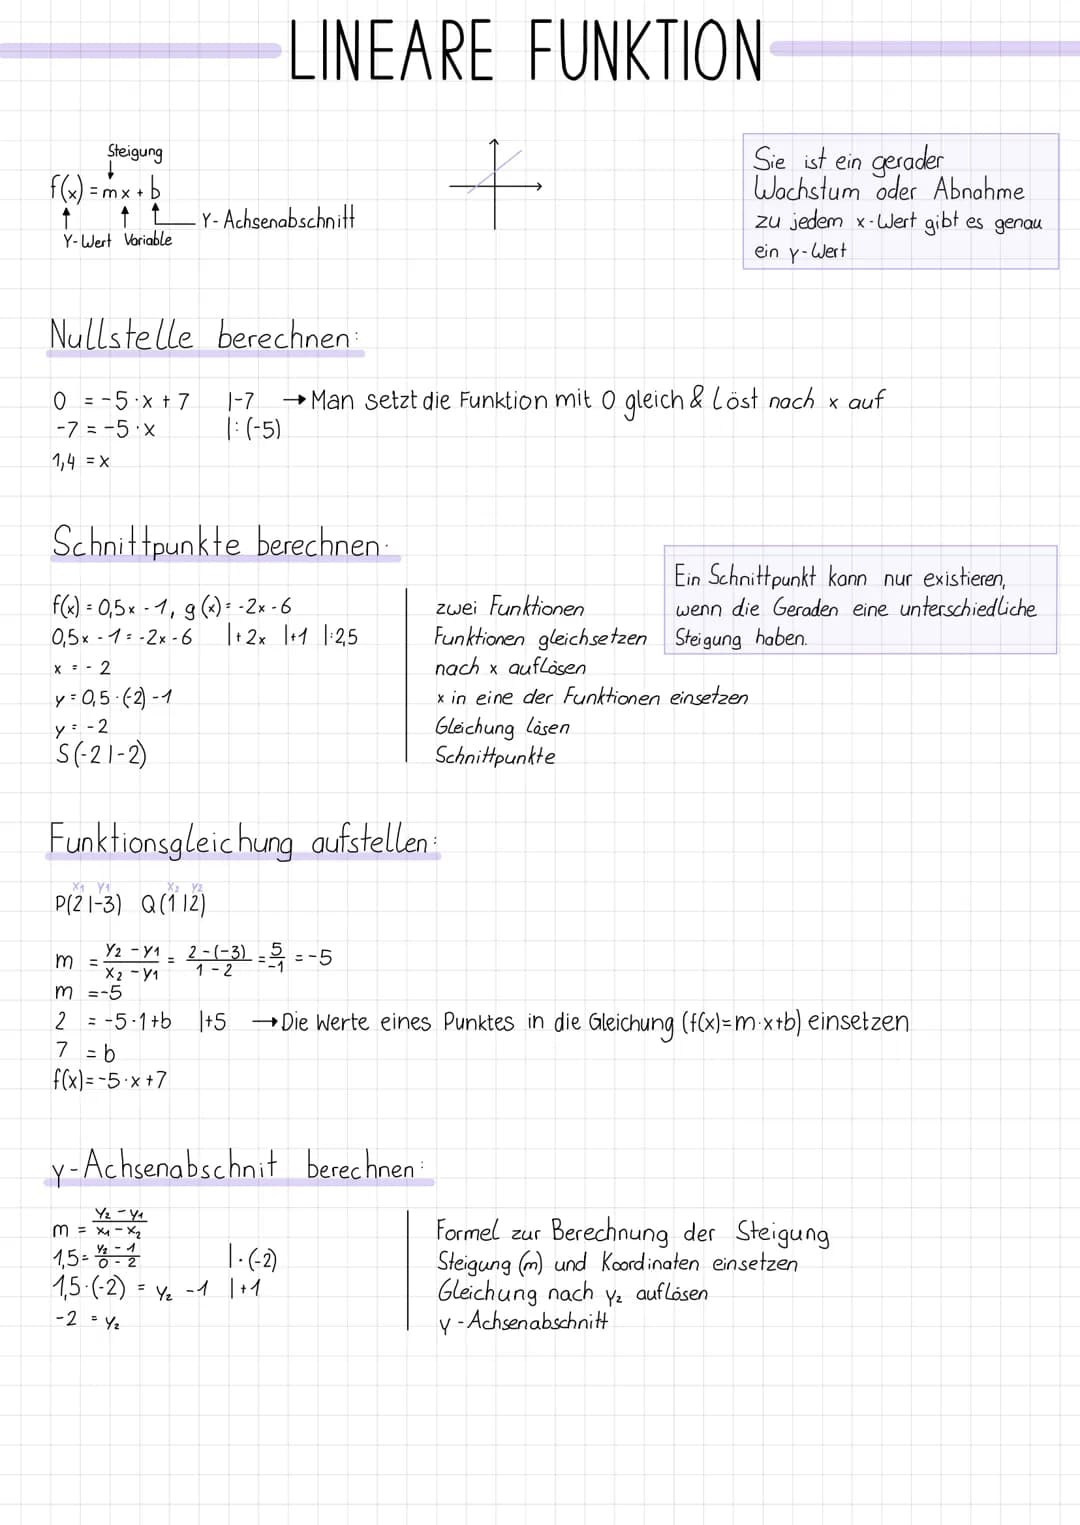 LINEARE FUNKTION
Steigung
f(x) = mx + b
Y-Achsenabschnitt
Y-Wert Variable
Sie ist ein gerader
Wachstum oder Abnahme
zu jedem x-Wert gibt es genau
ein y-Wert
Nullstelle berechnen:
0 = -5·x + 7 |-7 → Man setzt die Funktion mit 0 gleich & Löst nach x auf
-7 = -5·x |:(-5)
1,4 = x
Schnittpunkte berechnen:
Ein Schnittpunkt kann nur existieren,
wenn die Geraden eine unterschiedliche
Steigung haben.
f(x) = 0,5x - 1, g(x) = -2x - 6 zwei Funktionen
0,5x - 1 = -2x - 6 |+2x |+1 |:2,5 Funktionen gleichsetzen
x = -2 nach x auflösen
y = 0,5·(-2) - 1 x in eine der Funktionen einsetzen
y = -2 Gleichung lösen
S(-2|-2) Schnittpunkte
Funktionsgleichung aufstellen:
X1 Y1 X2 Y2
P(2|-3) Q(1|2)
m = Y2 - Y1 / X2 - Y1 = 2-(-3) / 1-2 = 5 / -1 = -5
m = -5
2 = -5·1+b |+5 → Die Werte eines Punktes in die Gleichung (f(x)=m·x+b) einsetzen
7 = b
f(x) = -5·x + 7
y-Achsenabschnit berechnen:
m = Y2 - Y1 / X1 - X2 Formel zur Berechnung der Steigung
1,5 = Y2 - 1 / 0 - 2 |·(-2) Steigung (m) und Koordinaten einsetzen
1,5·(-2) = Y2 - 1 |+1 Gleichung nach y2 auflösen
-2 = Y2 y-Achsenabschnitt